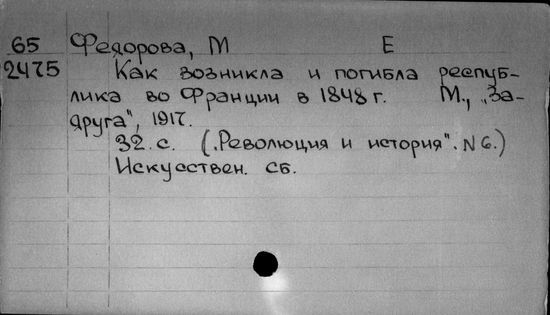 65 Федорова, М Е
2475 Как возникла и погибла респуб-
лика во Франции в 1848 г. М., „За-
друга", 1917.
32. с. („Революция и история". N 6.)
Искусствен. сб.